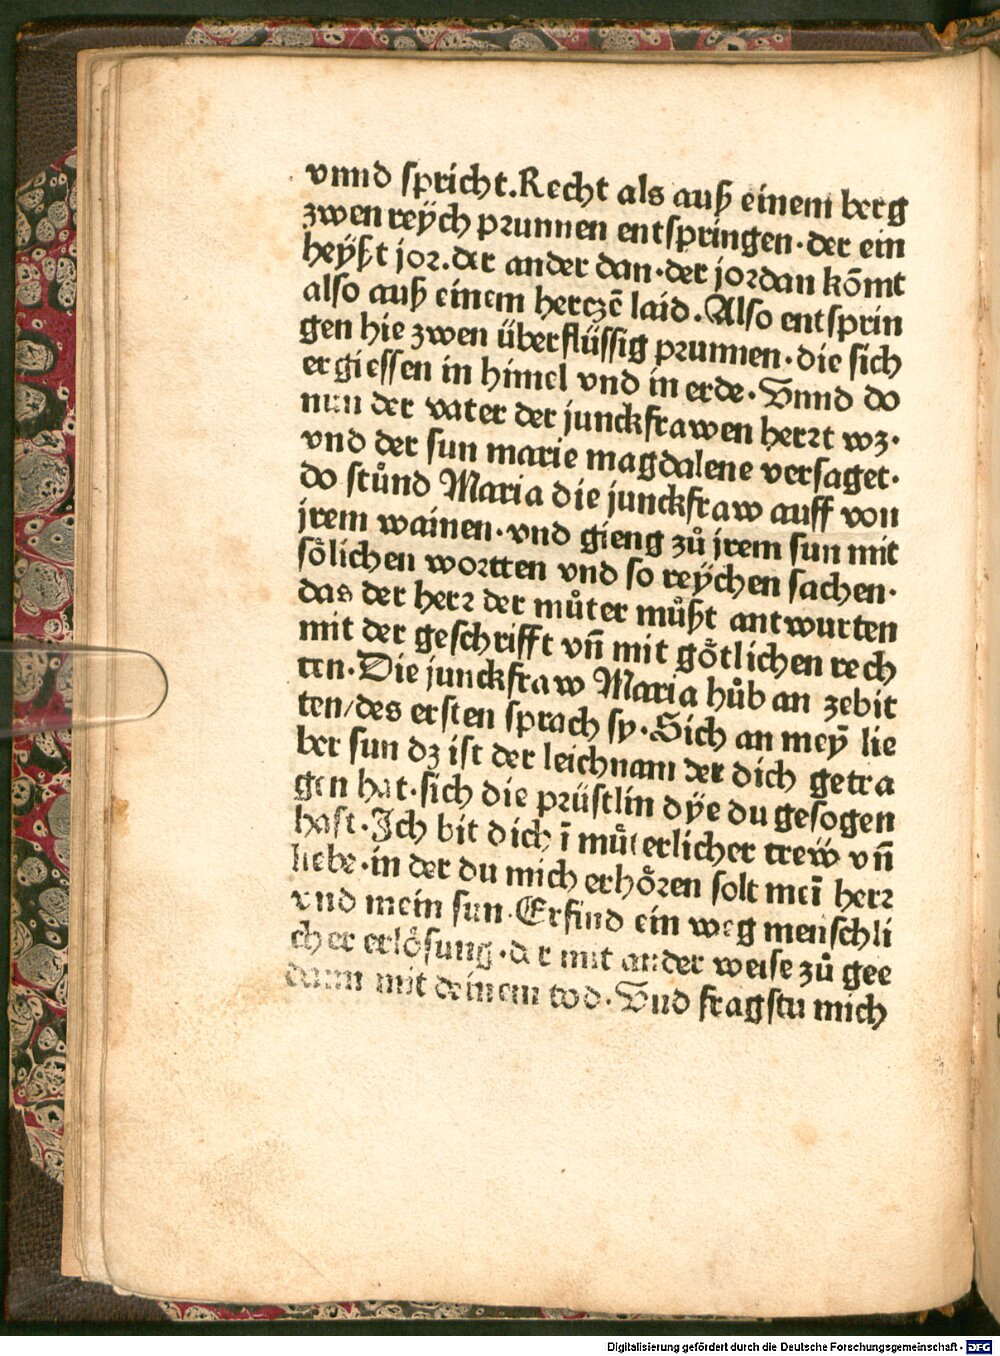 vnnd spricht. Recht als auß einem berg
zwen reÿch prunnen entspringen· der ein
heÿßt jor. der ander dan· der jordan kōmt
also auß einem herczē laid. Also entsprin
gen hie zwen überflüssig prunnen· die sich
ergiessen in himel vnd in erde. Vnnd do
nun der vater der junckfrawen herrt wz·
vnd der sun marie magdalene versaget·
do stůnd Maria die junckfraw auff von
jrem wainen· vnd gieng zů jrem sun mit
sölichen wortten vnd so reÿchen sachen·
das der herr der můter můßt antwurten
mit der geschrifft vñ mit götlichen rech
ten. Die junckfraw Maria hůb an zebit
ten/ des ersten sprach sy. Sich an meÿ̄ lie
ber sun dz ist der leichnam der dich getra
gen hat· sich die prüstlin dÿe du gesogen
hast. Ich bit dich ī můterlicher trew vñ
liebe· in der du mich erhören solt meī herr
vnd mein sun. Erfind ein weg menschli
cher erlösung· der mit ander weise zů gee
dann mit deinem tod. Vnd fragstu mich
Digitalisierung gefördert durch die Deutsche Forschungsgemeinschaft - DFG